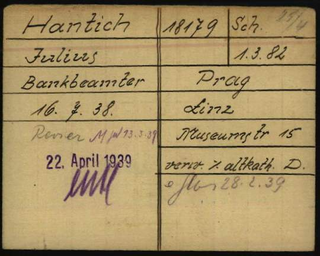 Hantich
18179
Sch.
Julius
1.3.82
Bankbeamter
Prag
16. 7. 38.
Linz
Museumstr 15
22. April 1939
verw. z altkath. D.
28.2.39